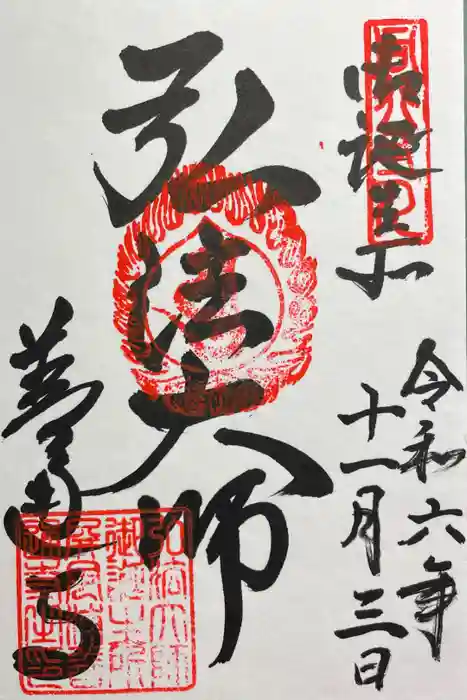 御誕生所
令和六年
十一月三日
弘法大師
善通寺
弘法大師
御誕生所